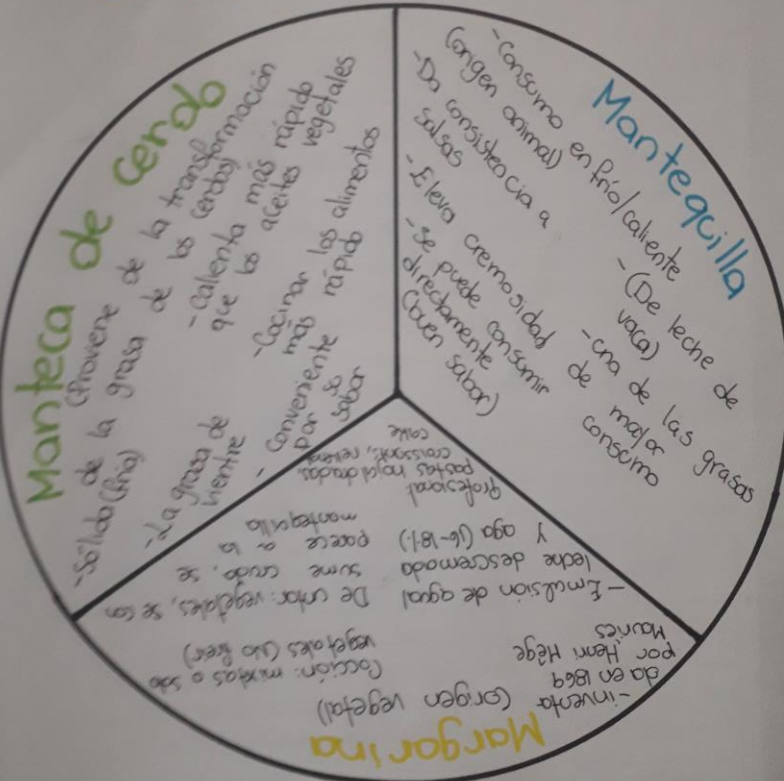 Manteca de cerdo
(Proviene de la transformación
de la grasa de los cerdos)
-Sólido (fría)
-Calienta más rápido
que los aceites vegetales
-La grasa de
vientre
-Cocinar los alimentos
más rápido
- Conveniente
por so
sabor
Mantequilla
-Consumo en frío/caliente
(origen animal)
-(De leche de
vaca)
-Da consistencia a
salsas
-una de las grasas
de mayor
consumo
-Eleva cremosidad
-Se puede consumir
directamente
(buen sabor)
Margarina
(origen vegetal)
-inventa
da en 1869
por Henri Mège
Mouriès
Cocción: mixtas o solo
vegetales (No freír)
-Emulsión de agual
leche descremada
y aga (16-18%)
De untar: vegetales, se con
sume crudo, se
parece a la
mantequilla
Profesional
pastas hojaldradas,
croissants,